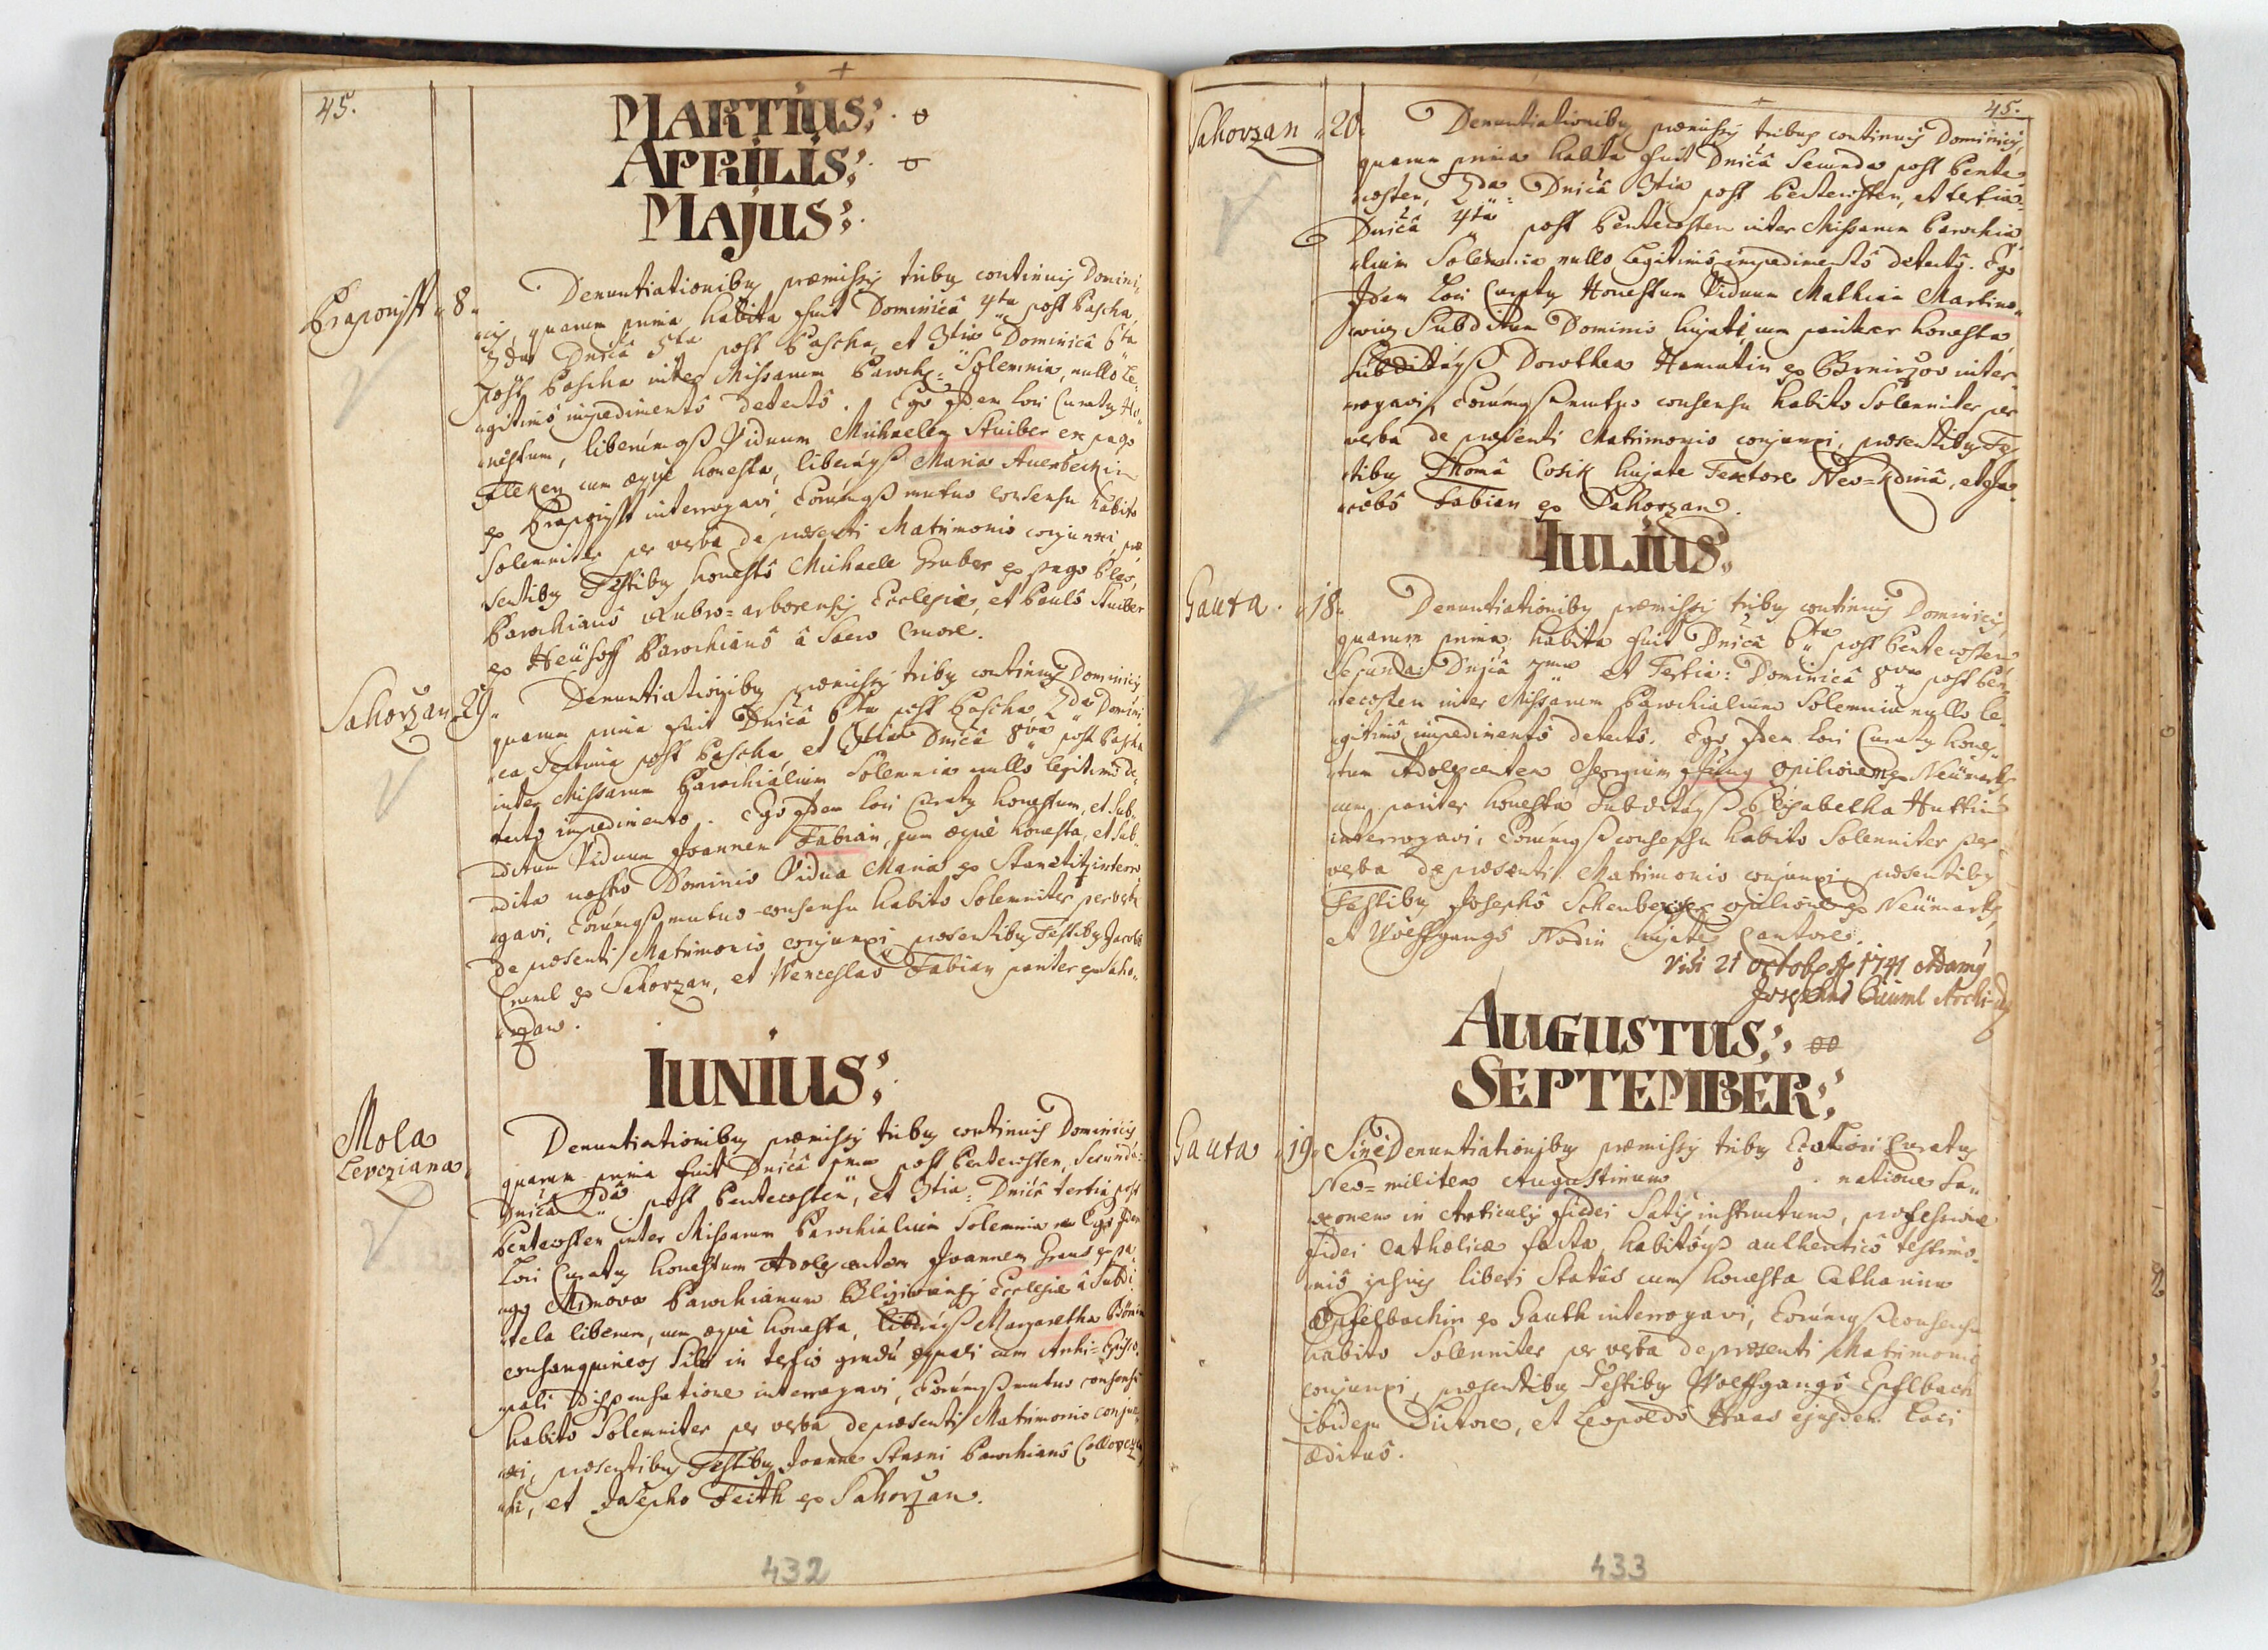 45.
MARTIUS;
APRILIS;
MAJUS;
Praponisht 8
Denuntiationibus præmissis tribus continuis Domini,
cis, quarum prima habita fuit Dominicâ 4ta post Pascha,
2da Dnicâ 5ta post Pascha, et 3tia Dominicâ 6ta
post Pascha inter Missarum Paroch: Solemnia, nullo le,
gitimo impedimentô detectô. Ego Idem Loci Curatus Ho,
nestum, liberúmq̃ Viduum Michaelem Stuiber ex pago
cum æquè honesta, liberáq̃ Maria Auerbeckin
ex interrogavi, Eorúmq̃ mutuo consensu habito
Solemniter per verba de præsenti Matrimonio conjunxi, præ
sentibus Testibus honestô Michaele Gruber ex pago
Parochianô Rubro=arborensis Ecclesiæ, et Paulô Stuiber
ex Neühoff Parochianô â Sacro Cruore.
Sahorzan 29
Denuntiationibus præmissis tribus continuis Dominicis
quarum prima fuit Dnicâ 6ta post Pascha 2da Domini
ca Septima post Pascha, et 3tia Dnicâ 8vâ post Pascha
inter Missarum Parochialium Solemnia nullô legitimo de,
tecto impedimento. Ego Idem Loci Curatus honestum, et Sub,
ditum Viduum Joannem Fabian, cum æquè honesta, et Sub,
dita nostro Dominio Vidua Maria ex interro
gavi, Eorúmq̃ mutuo consensu habito Solemniter per verba
de præsenti Matrimonio conjunxi præsentibus Testibus Jacobô
ex Sahorzan, et Wenceslaô Fabian pariter ex Saho,
rzan.
IUNIUS;
Mola
Levcziana
Denuntiationibus præmissis tribus continuis Dominicis
quarum prima fuit Dnicâ 1ma post Pentecosten, Secunda:
Dnicâ 2dâ post Pentecosten, et 3tia: Dnicâ tertia post
Pentecosten inter Missarum Parochialium Solemnia Ego Idem
Loci Curatus honestum Adolescentem Joannem Graus ex pa
go Parochianum Ecclesiæ â Subdi
tela liberum, cum æquè honesta, liberáq̃ Margaretha
consanguineos Sibi in tertio gradú æquali cum Archi=Episco,
pali Dispensatione interrogavi, Eorúmq̃ mutuo consensu
habito Solemniter per verba de præsenti Matrimonio conjun
xi, præsentibus Testibus Joanne Parochianô
et Josepho Feith ex Sahorzan.
432
45.
Sahorzan 20
Denuntiationibus præmissis tribus continuis Dominicis,
quarum prima habita fuit Dnicâ Secunda post Pente,
costen, 2da: Dnicâ 3tia post Pentecosten, et tertia:
Dnicâ 4ta post Pentecosten inter Missarum Parochia,
lium Solemnia nullo Legitimô impedimentô detectô. Ego
Idem Loci Curatus Honestum Viduum Mathiam Martino,
Subditum Dominio hujati, cum pariter honesta,
Subditáq̃ Dorothea ex inter,
rogavi, Eorúmq̃ mutuo consensu habito Solemniter per
verba de præsenti Matrimonio conjunxi, præsentibus Tes
tibus Thomâ Cosik hujate Textore et Ja,
cobô Fabian ex Sahorzan.
IULIUS;
Gauta 18
Denuntiationibus præmissis tribus continuis Dominicis,
quarum prima: habita fuit Dnicâ 6ta post Pentecosten
Secunda: Dnicâ 7ma et Tertia: Dominicâ 8va post Pen,
tecosten inter Missarum Parochialium Solemnia nullo le,
gitimô impedimentô detectô. Ego Idem Loci Curatus hones,
tum Adolescentem Georgium opilionem ex Neümarkt
cum pariter honesta Subditáq̃ Elisabetha Huttin
interrogavi, Eorúmq̃ consensu habito Solemniter per
verba de præsenti Matrimonio conjunxi præsentibus
Testibus Josephô opilione ex Neümarkt,
et Wolffgangô Nodin hujate Cantore.
Vidi 21 Octobris 1741 Adamus
Josephus Archi-
AUGUSTUS;
SEPTEMBER;
Gauta 19
Sinè Denuntiationibus præmissis tribus Curatus
Neo=militem Augustinum natione Sa,
xonem in Articulis fidei Satis instructum, professione
fidei Catholicæ facta, habitóq̃ authenticô testimo,
niô ipsius liberi Statûs cum honesta Catharina
Epfelbachin ex Gauth interrogavi, Eorúmq̃ consensu
habito Solemniter per verba de præsenti Matrimonio
conjunxi, præsentibus Testibus Wolffgangô Epflbach
ibidem et Leopoldô Haas ejusdem Loci
ædituô.
433